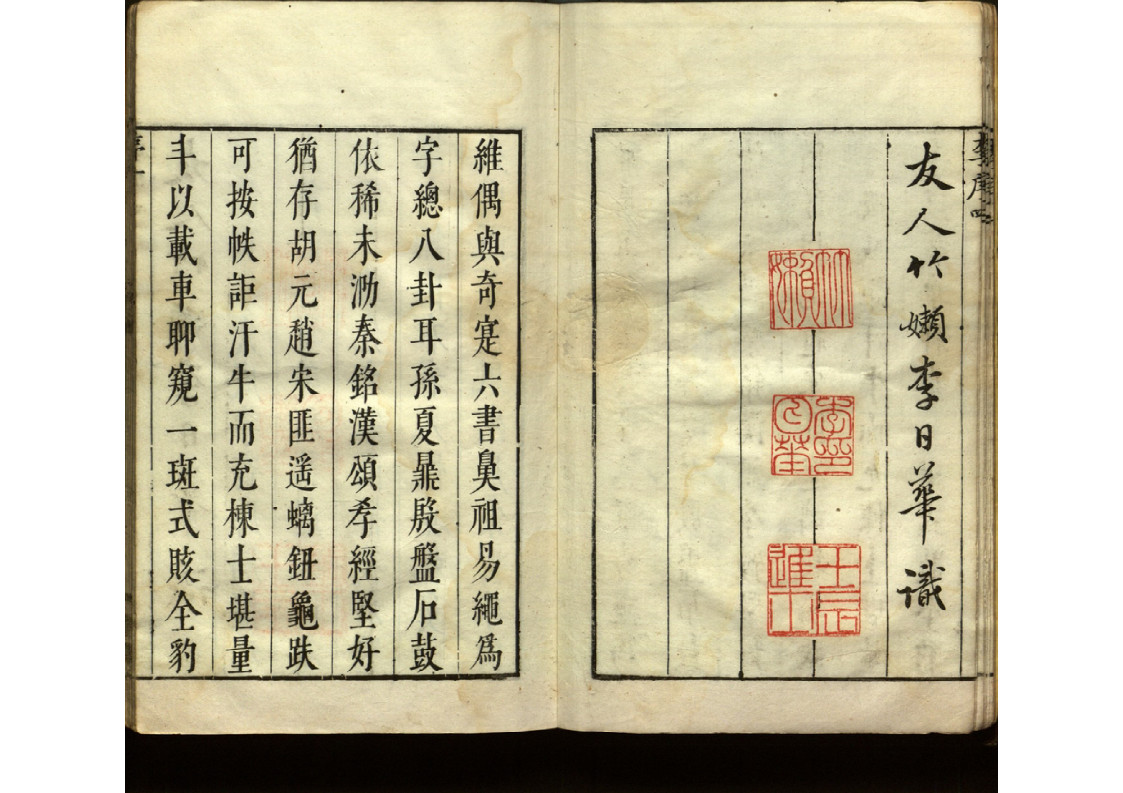 友人竹嬾李日華識
竹嬾
李日華
壬辰進士
維偶與奇寔六書臭祖易繩爲
字總八卦耳孫夏鼎殷盤石鼓
依稀未泐秦銘漢頌孝經堅好
猶存胡元趙宋匪遥螭鈕龜趺
可按帙詎汗牛而充棟士堪量
斗以載車聊窺一斑式賅全豹